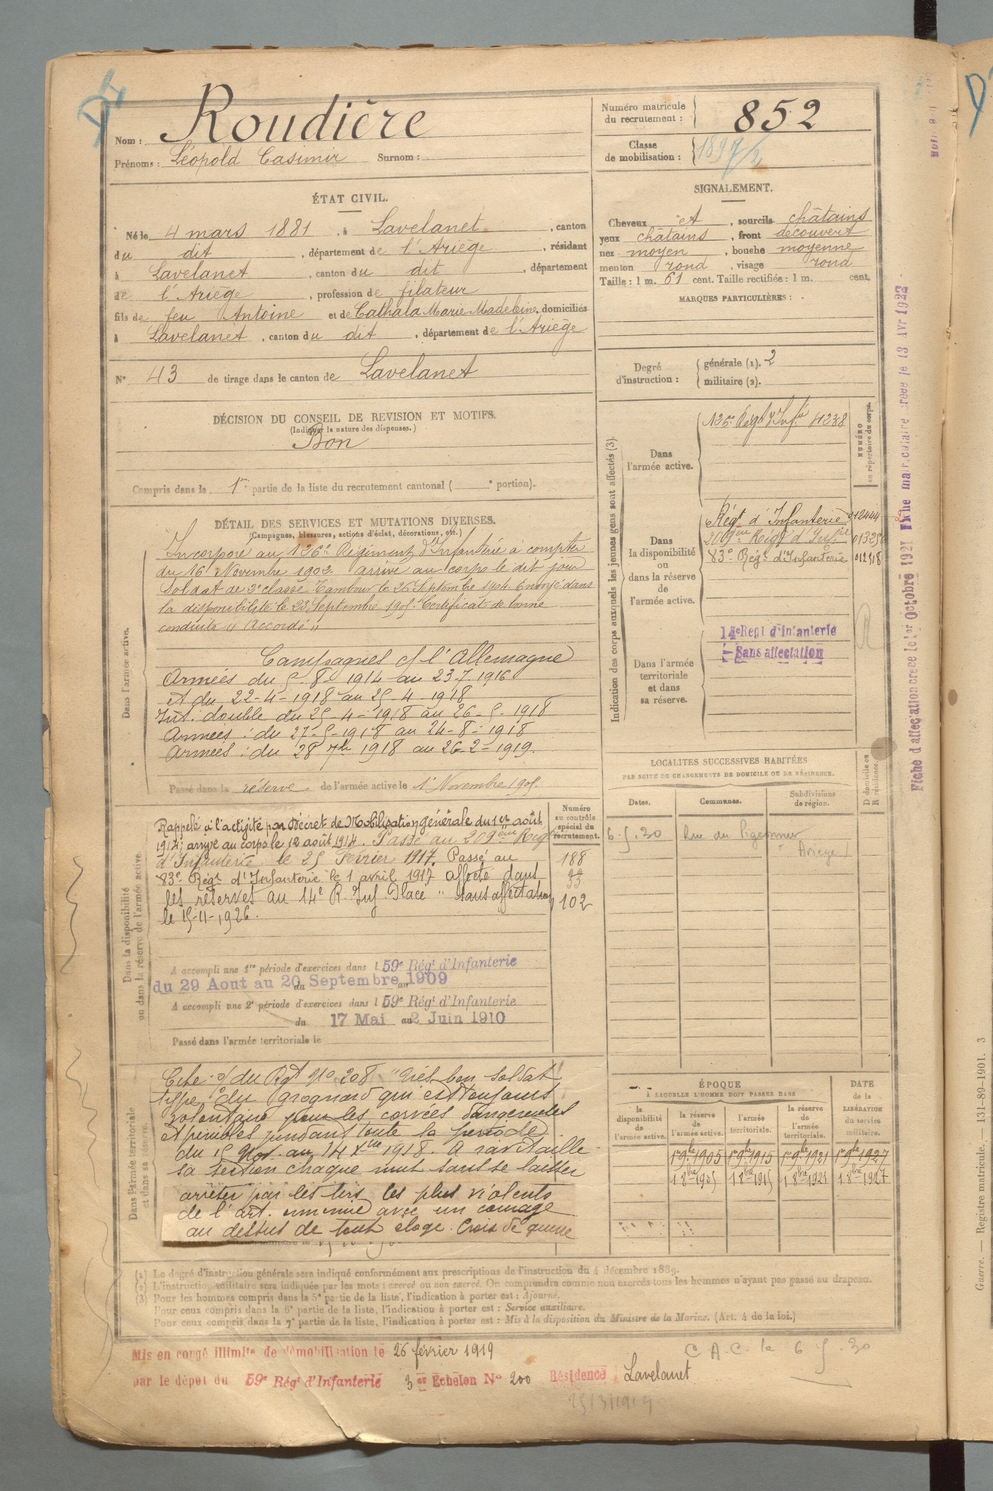 Nom : Roudière
Prénoms : Léopold Casimir Surnom :
Numéro matricule du recrutement : 852
Classe de mobilisation :
ÉTAT CIVIL.
Né le 4 mars 1881, à Lavelanet, canton
du dit, département de l'Ariège, résidant
à Lavelanet, canton du dit, département
de l'Ariège, profession de filateur
fils de feu Antoine et de Cathala Marie Madeleine, domiciliés
à Lavelanet, canton du dit, département de l'Ariège
N° 43 de tirage dans le canton de Lavelanet
SIGNALEMENT.
Cheveux et, sourcils châtains
yeux châtains, front découvert
nez moyen, bouche moyenne
menton rond, visage rond
Taille : 1 m. 61 cent. Taille rectifiée : 1 m. cent.
MARQUES PARTICULIÈRES :
Degré d'instruction : générale (1). 2
militaire (2).
DÉCISION DU CONSEIL DE REVISION ET MOTIFS.
(Indiquer la nature des dispenses.)
Bon
Compris dans la 1re partie de la liste du recrutement cantonal ( e portion).
DÉTAIL DES SERVICES ET MUTATIONS DIVERSES.
(Campagnes, blessures, actions d'éclat, décorations, etc.)
Dans l'armée active.
Incorporé au 126e Régiment d'Infanterie à compter
du 16 Novembre 1902 arrivé au corps le dit jour
Soldat de 2e classe Tambour le 26 Septembre 1904 Envoyé dans
la disponibilité le 23 Septembre 1905 Certificat de bonne
conduite "Accordé"
Campagnes c/ l'Allemagne
Armées du 5-8 1914 au 23.7.1916
et du 22-4-1918 au 25-4 1918
Int. double du 25-4-1918 au 26-5-1918
Armées : du 27-5-1918 au 24-8-1918
Armées : du 28 7bre 1918 au 26-2-1919.
Passé dans la réserve de l'armée active le 1er Novembre 1905.
Indication des corps auxquels les jeunes gens sont affectés (3).
NUMÉRO au répertoire du corps.
Dans l'armée active.
126e Régt d'Infie 11238
Dans la disponibilité ou dans la réserve de l'armée active.
Régt d'Infanterie 012444
209ème Régt d'Infie 01328
83e Régt d'Infanterie 012918
Dans l'armée territoriale et dans sa réserve.
14e Regt d'Infanterie
Sans affectation
Fiche d'affectation créée le 1er Octobre 1921 Fiche matriculaire créée le 13 Avr 1922
Dans la disponibilité ou dans la réserve de l'armée active.
Numéro au contrôle spécial du recrutement.
Rappelé à l'activité par Décret de Mobilisation générale du 1er août
1914; arrivé au corps le 12 août 1914. Passé au 209ème Régt
d'Infanterie le 25 Février 1917. Passé au
83e Régt d'Infanterie le 1 avril 1917 affecté dans
les réserves au 14e R. Inf. Placé "sans affectation"
le 15-11-1926.
188
102
A accompli une 1re période d'exercices dans l 59e Régt d'Infanterie
du 29 Aout au 20 Septembre 1909
A accompli une 2e période d'exercices dans l 59e Régt d'Infanterie
du 17 Mai au 2 Juin 1910
Passé dans l'armée territoriale le
LOCALITES SUCCESSIVES HABITÉES
PAR SUITE DE CHANGEMENTS DE DOMICILE OU DE RÉSIDENCE.
Dates. Communes. Subdivisions de région. D domicile ou R résidence.
6.5.30 Rue du Pigeonnier
Ariège
Dans l'armée territoriale et dans sa réserve.
Cité o/ du Rgt N° 208 "Très bon soldat
type du grognard qui est toujours
volontaire pour les corvées dangereuses
et pénibles pendant toute la période
du 15 Nov. au 14 Xbre 1918. A ravitaillé
sa section chaque nuit sans se laisser
arrêter par les tirs les plus violents
de l'art. ennemie avec un courage
au dessus de tout éloge. Croix de guerre
ÉPOQUE
À LAQUELLE L'HOMME DOIT PASSER DANS
la disponibilité de l'armée active. la réserve de l'armée active. l'armée territoriale. la réserve de l'armée territoriale. DATE de la LIBÉRATION du service militaire.
1er 9bre 1905 1er 9bre 1915 1er 9bre 1921 1er 9bre 1927
1 8bre 1905 1 8bre 1915 1 8bre 1921 1 8bre 1927
(1) Le degré d'instruction générale sera indiqué conformément aux prescriptions de l'instruction du 4 décembre 1889.
(2) L'instruction militaire sera indiquée par les mots : exercé ou non exercé. On comprendra comme non exercés tous les hommes n'ayant pas passé au drapeau.
(3) Pour les hommes compris dans la 5e partie de la liste, l'indication à porter est : Ajourné.
Pour ceux compris dans la 6e partie de la liste, l'indication à porter est : Service auxiliaire.
Pour ceux compris dans la 7e partie de la liste, l'indication à porter est : Mis à la disposition du Ministre de la Marine. (Art. 4 de la loi.)
Mis en congé illimité de démobilisation le 26 février 1919
par le dépôt du 59e Régt d'Infanterie 3me Echelon N° 200 Résidence Lavelanet
C.A.C. le 6.5.30
25/3/1919
Guerre. — Registre matricule. — 131-89-1901. 3